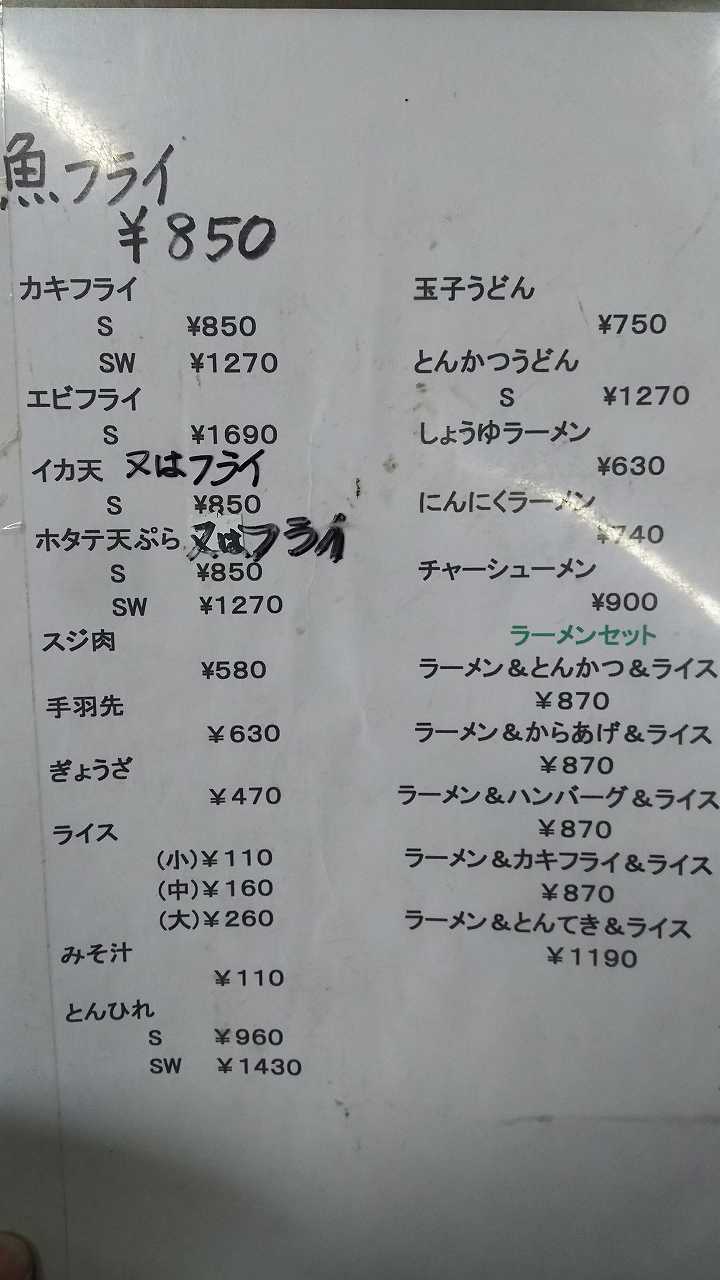 魚フライ
¥850
カキフライ
S ¥850
SW ¥1270
エビフライ
S ¥1690
イカ天 又はフライ
S ¥850
ホタテ天ぷら 又はフライ
S ¥850
SW ¥1270
スジ肉
¥580
手羽先
¥630
ぎょうざ
¥470
ライス
(小)¥110
(中)¥160
(大)¥260
みそ汁
¥110
とんひれ
S ¥960
SW ¥1430
玉子うどん
¥750
とんかつうどん
S ¥1270
しょうゆラーメン
¥630
にんにくラーメン
¥740
チャーシューメン
¥900
ラーメンセット
ラーメン&とんかつ&ライス
¥870
ラーメン&からあげ&ライス
¥870
ラーメン&ハンバーグ&ライス
¥870
ラーメン&カキフライ&ライス
¥870
ラーメン&とんてき&ライス
¥1190